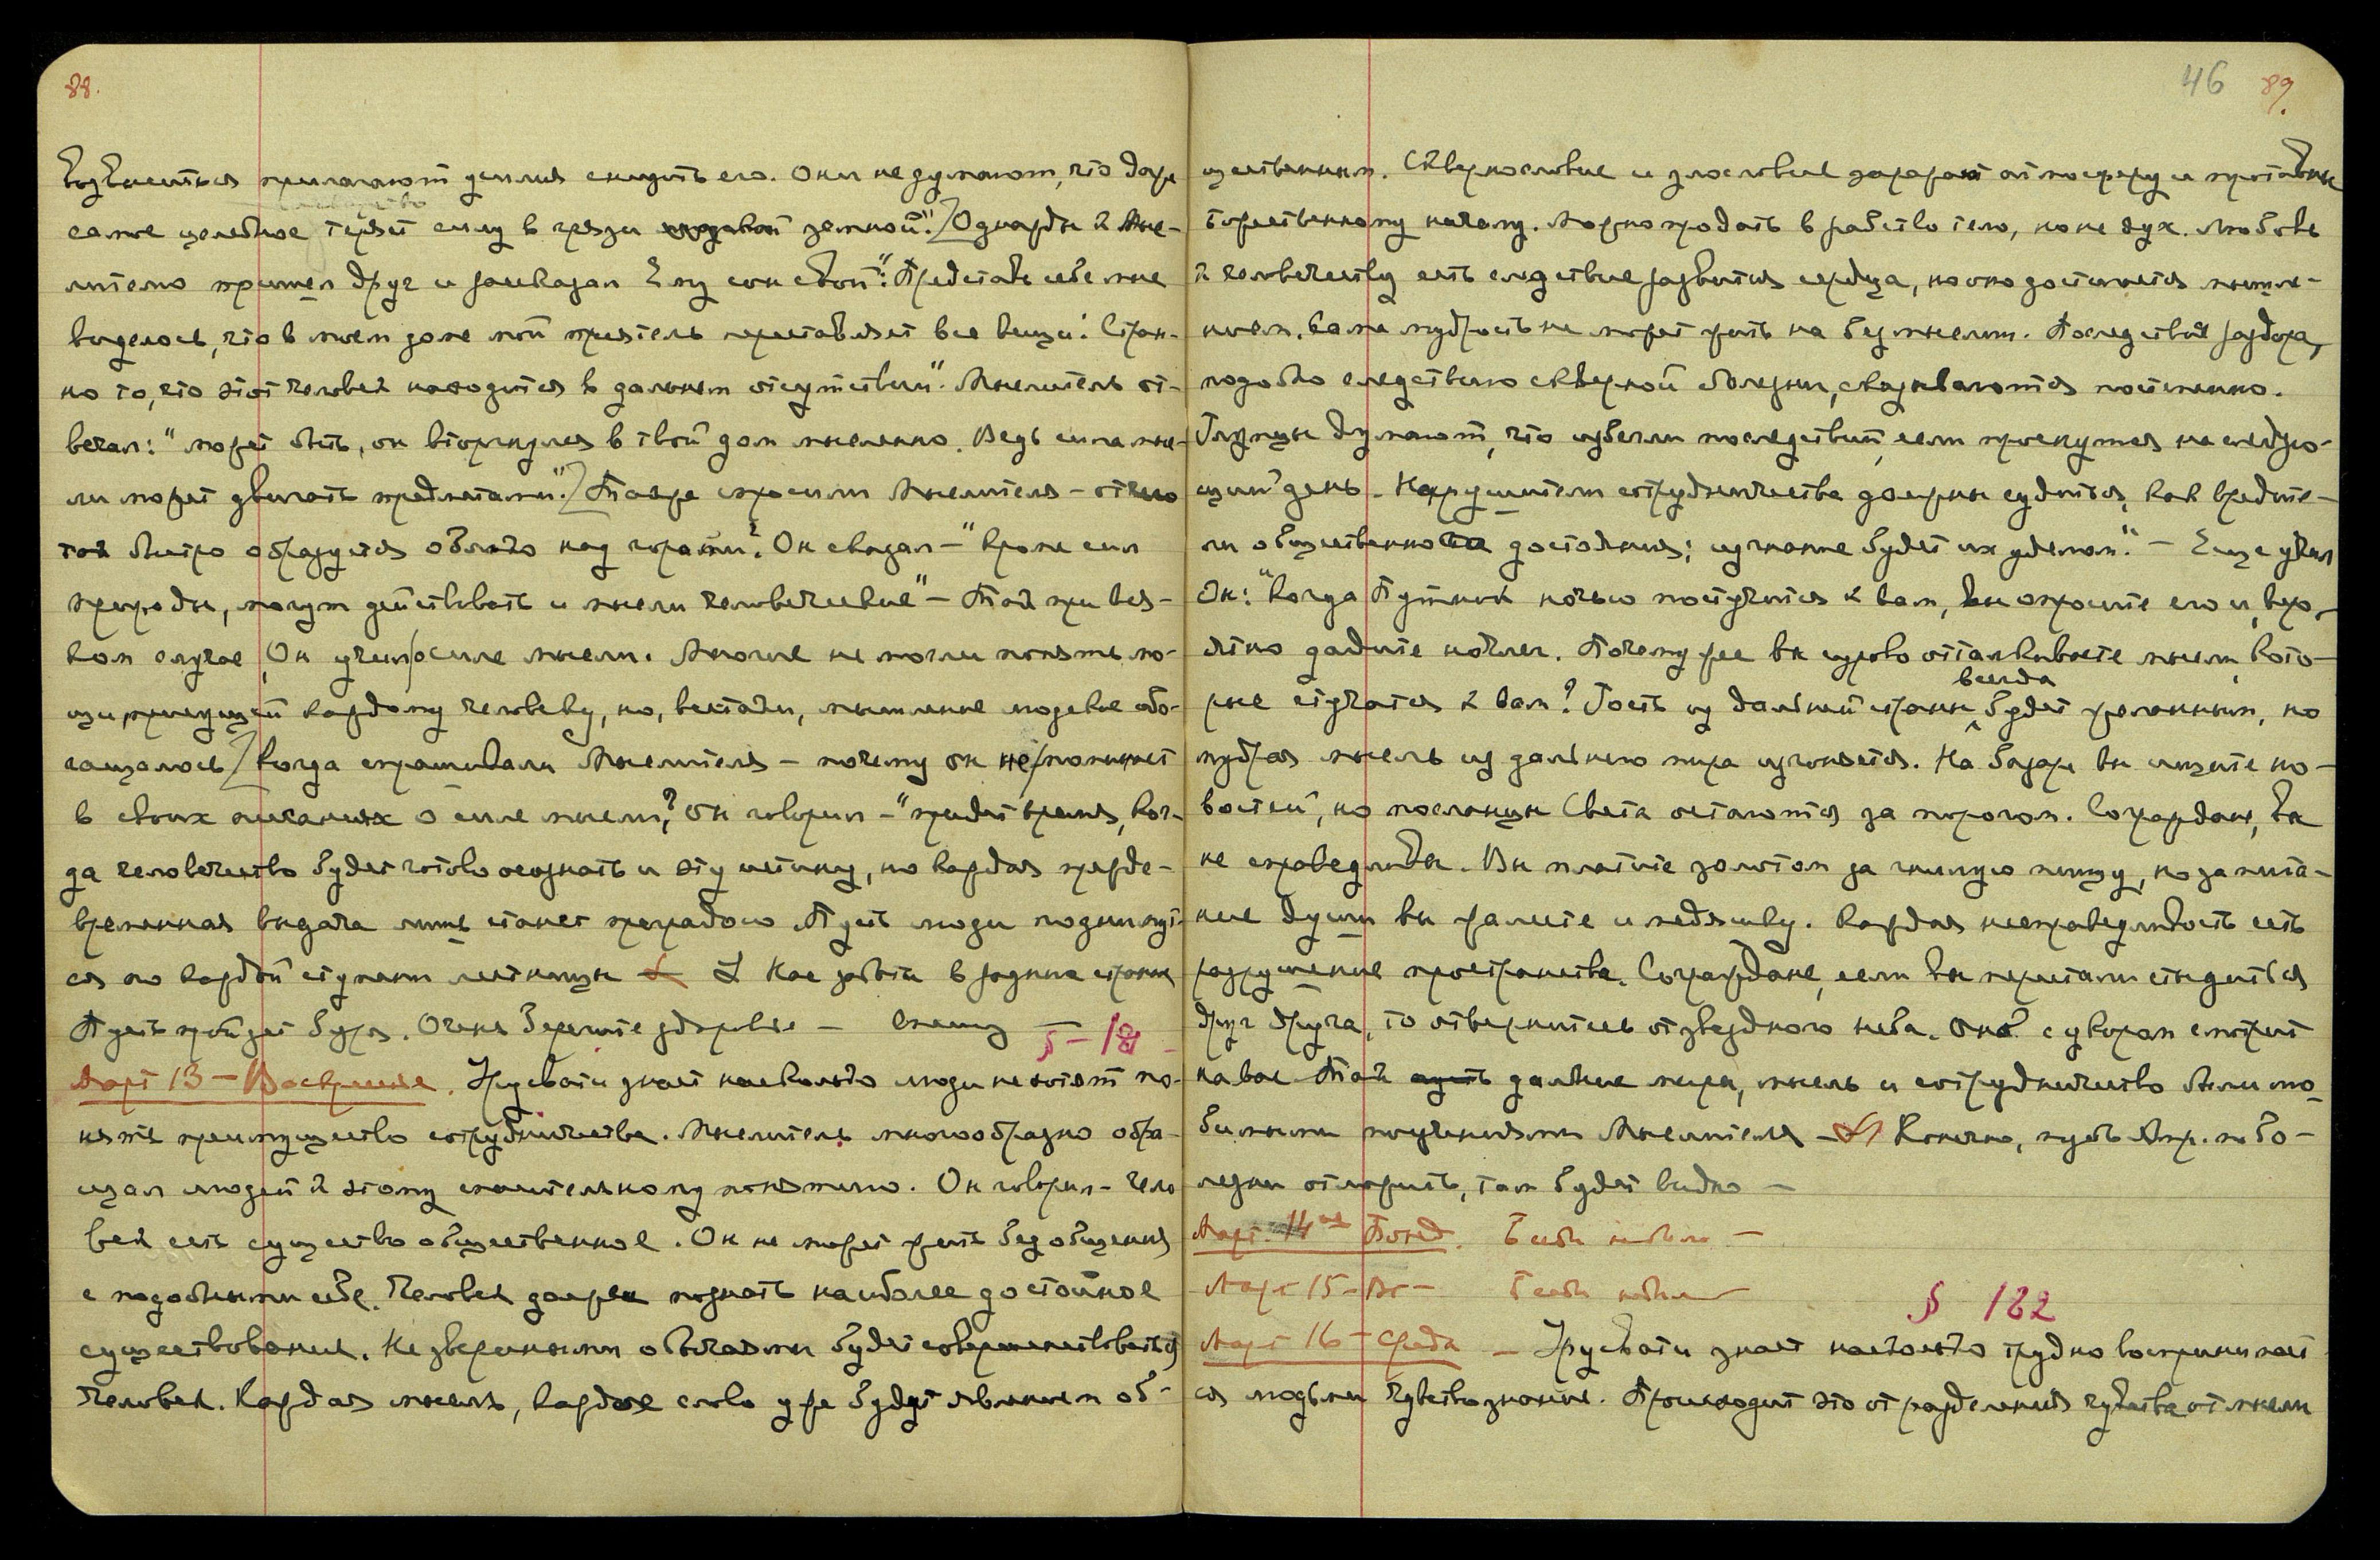 88.
возвыситься прилагают усилия снизить его. Они не думают, что даже
самое целебное теряет силу в грязи земной." Однажды к Мыс-
лителю пришел друг и рассказал Ему сон свой: "Представь себе мне
виделось, что в моем доме мой приятель переставляет все вещи. Стран-
но то, что этот человек находится в дальнем отсутствии". Мыслитель от-
вечал: "может быть, он вторгнулся в твой дом мысленно. Ведь сила мыс-
ли может двигать предметами". Также спросили Мыслителя – отчего
так быстро образуется облако над горами? Он сказал – "кроме сил
природы, могут действовать и мысли человеческие" – Так при вся-
ком случае Он учил о силе мысли. Многие не могли понять мо-
щи, присущей каждому человеку, но, вестали, мышление людское обо-
гащалось. Когда спрашивали Мыслителя – почему он не поминает
в своих писаниях о силе мысли? Он говорил – "придет время, ког-
да человечество будет готово осознать и эту истину, но каждая прежде-
временная выдача лишь станет преградою. Пусть люди поднимут-
ся по каждой ступени лестницы
Пусть пройдет буря. Очень берегите здоровье – Спешу –
§ – 181 –
Март 13 – Воскресенье. Урусвати знает насколько люди не хотят по-
нять преимущество сотрудничества. Мыслитель многообразно обра-
щал людей к этому спасительному понятию. Он говорил – чело
век есть существо общественное. Он не может жить без общения
с подобными себе. Человек должен познать наиболее достойное
существование. Не звериными обычаями будет совершенствоваться
человек. Каждая мысль, каждое слово уже будет явлением об-
46 89.
щественным. Сквернословие и злословие заражают атмосферу и противны
божественному началу. Можно продать в рабство тело, но не дух. Любовь
к человечеству есть следствие развития сердца, но оно достигается мышле-
нием. Сама мудрость не может жить на безмыслии. Последствия раздора,
подобно следствию скверной болезни, сказываются постепенно.
Глупцы думают, что избегли последствий, если проснутся на следую-
щий день. Нарушители сотрудничества должны судиться, как вредите-
ли общественного достояния; изгнание будет их уделом." – Еще учил
Он: "Когда Путник ночью постучится к вам, вы спросите его и, веро-
ятно дадите ночлег. Почему же вы сурово отталкиваете мысли, кото-
рые стучатся к вам? Гость из дальней страны всегда будет желанным, но
мудрая мысль из дальнего мира изгоняется. На базаре вы ищите но-
востей, но посланцы Света остаются за порогом. Сограждане, вы
не справедливы. Вы платите золотом за гнилую пищу, но за пита-
ние души вы жалеете и медяшку. Каждая несправедливость есть
разрушение пространства. Сограждане, если вы перестали стыдиться
друг друга, то отвернитесь от звездного неба. Оно с укором смотрит
на вас Так дальние миры, мысль и сотрудничество были лю
бимыми поучениями Мыслителя – Конечно, пусть Амр. по бо-
лезни отложить, там будет видно –
Март 14ое Понед. Бесед не было –
Март 15 – Вт – Бесед не было
§ 182
Март 16 – среда – Урусвати знает насколько трудно воспринимает
ся людьми чувствознание. Происходит это от разделения чувства от мысли